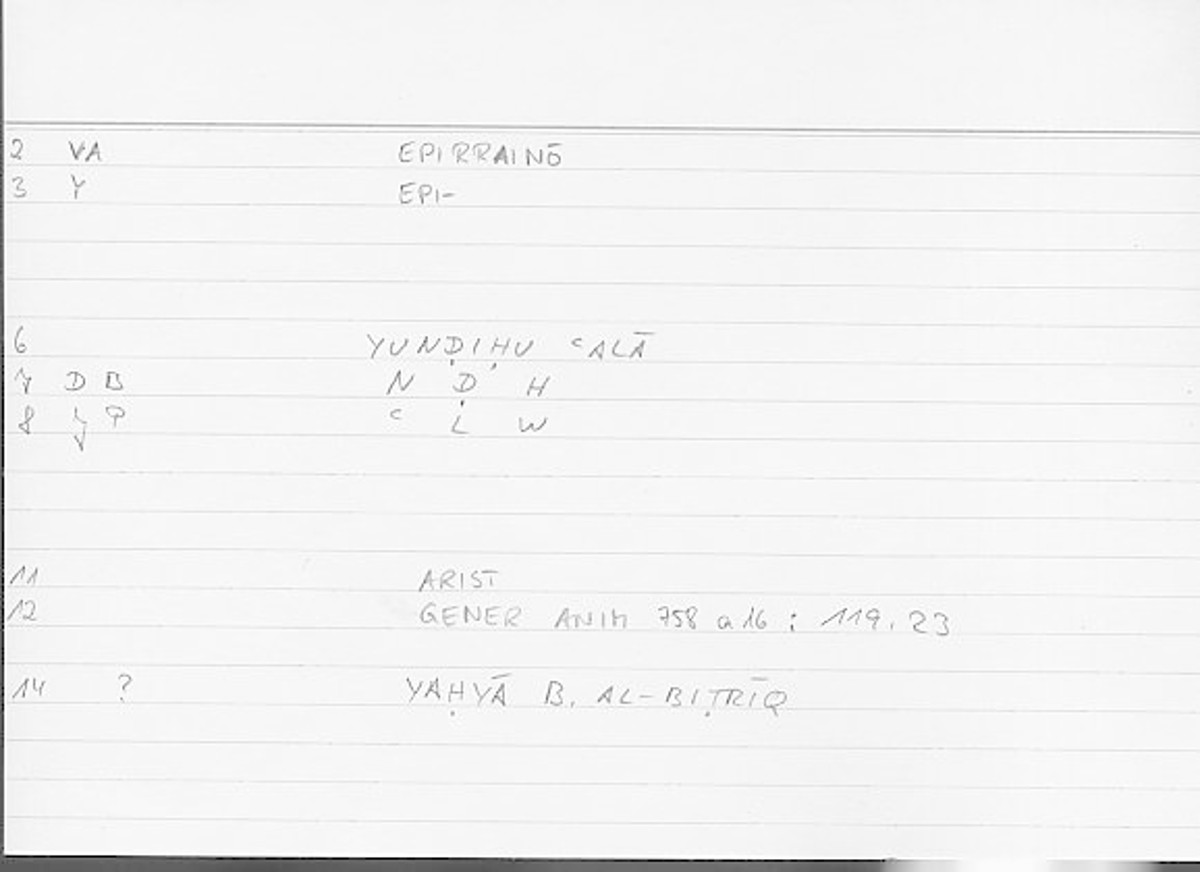 2 VA EPIRRAINŌ
3 Y EPI-
6 YUNḌIḤU ʿALĀ
7 D B N Ḍ Ḥ
8 ʿ L W
11 ARIST
12 GENER ANIM 758 a 16 : 119,23
14 ? YAḤYĀ B. AL-BIṬRĪQ